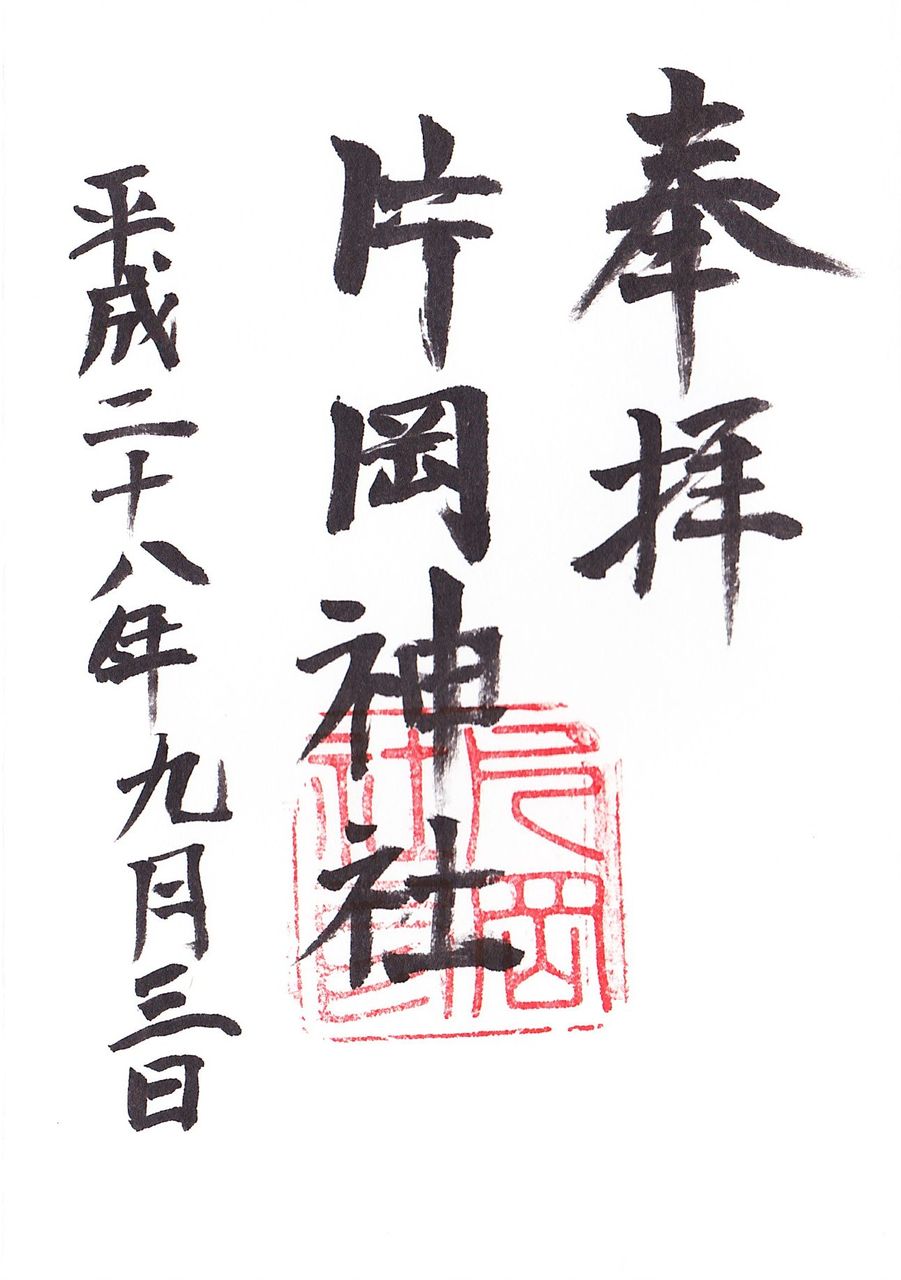 奉拝
片岡神社
片岡
社印
平成二十八年九月三日